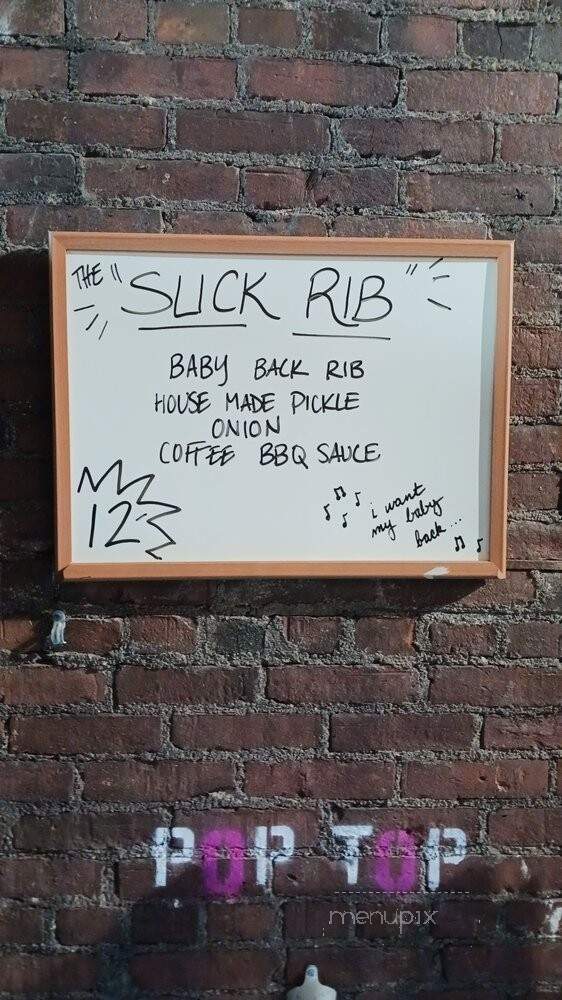 THE "SLICK RIB"
BABY BACK RIB
HOUSE MADE PICKLE
ONION
COFFEE BBQ SAUCE
12-
i want
my baby
back...
POP TOP
menupix